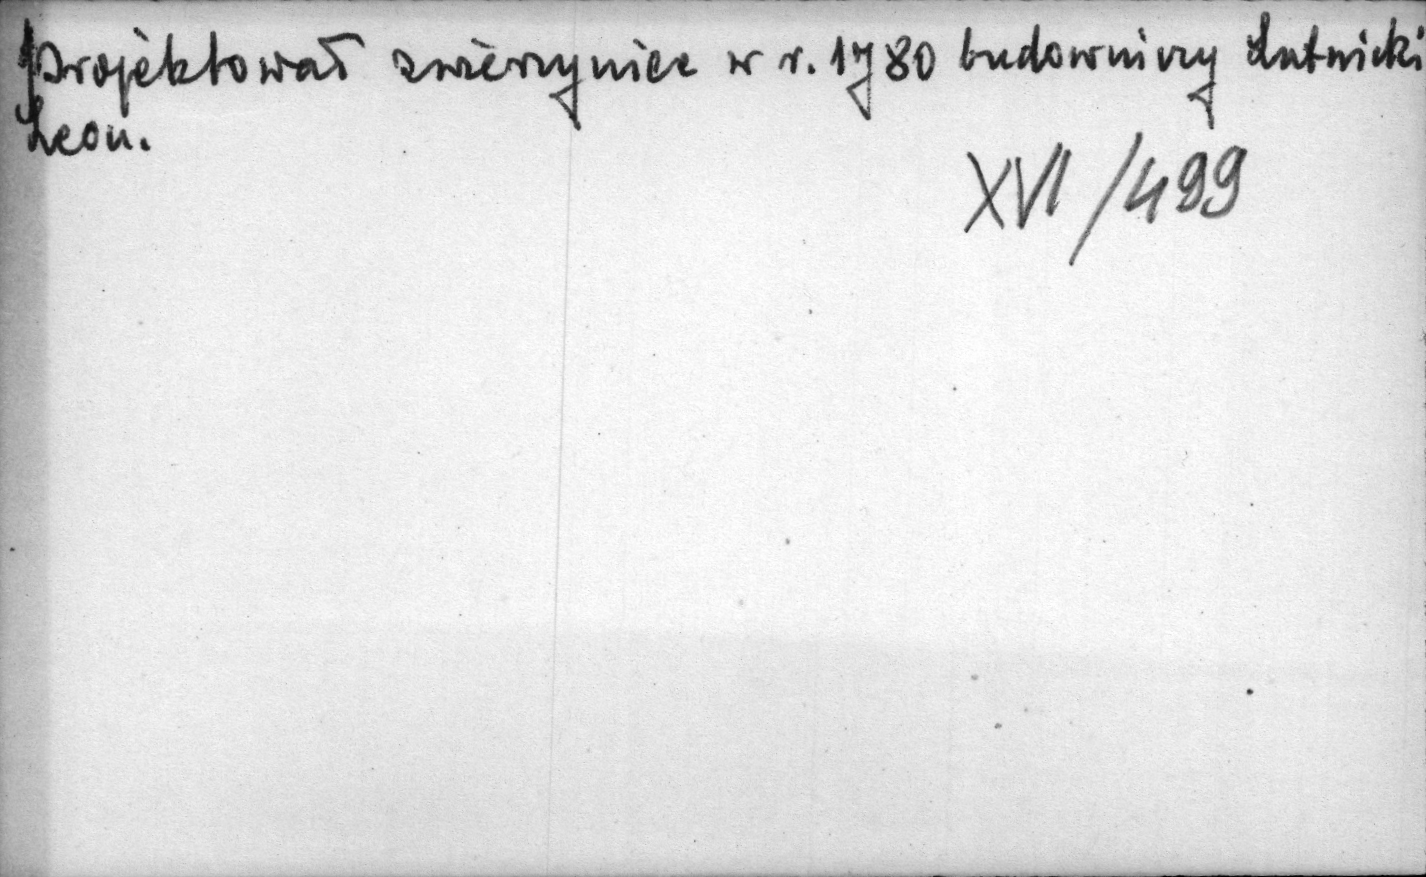 projektował zwierzyniec w r. 1780 budowniczy Lutnicki
Leon.
XVI/499